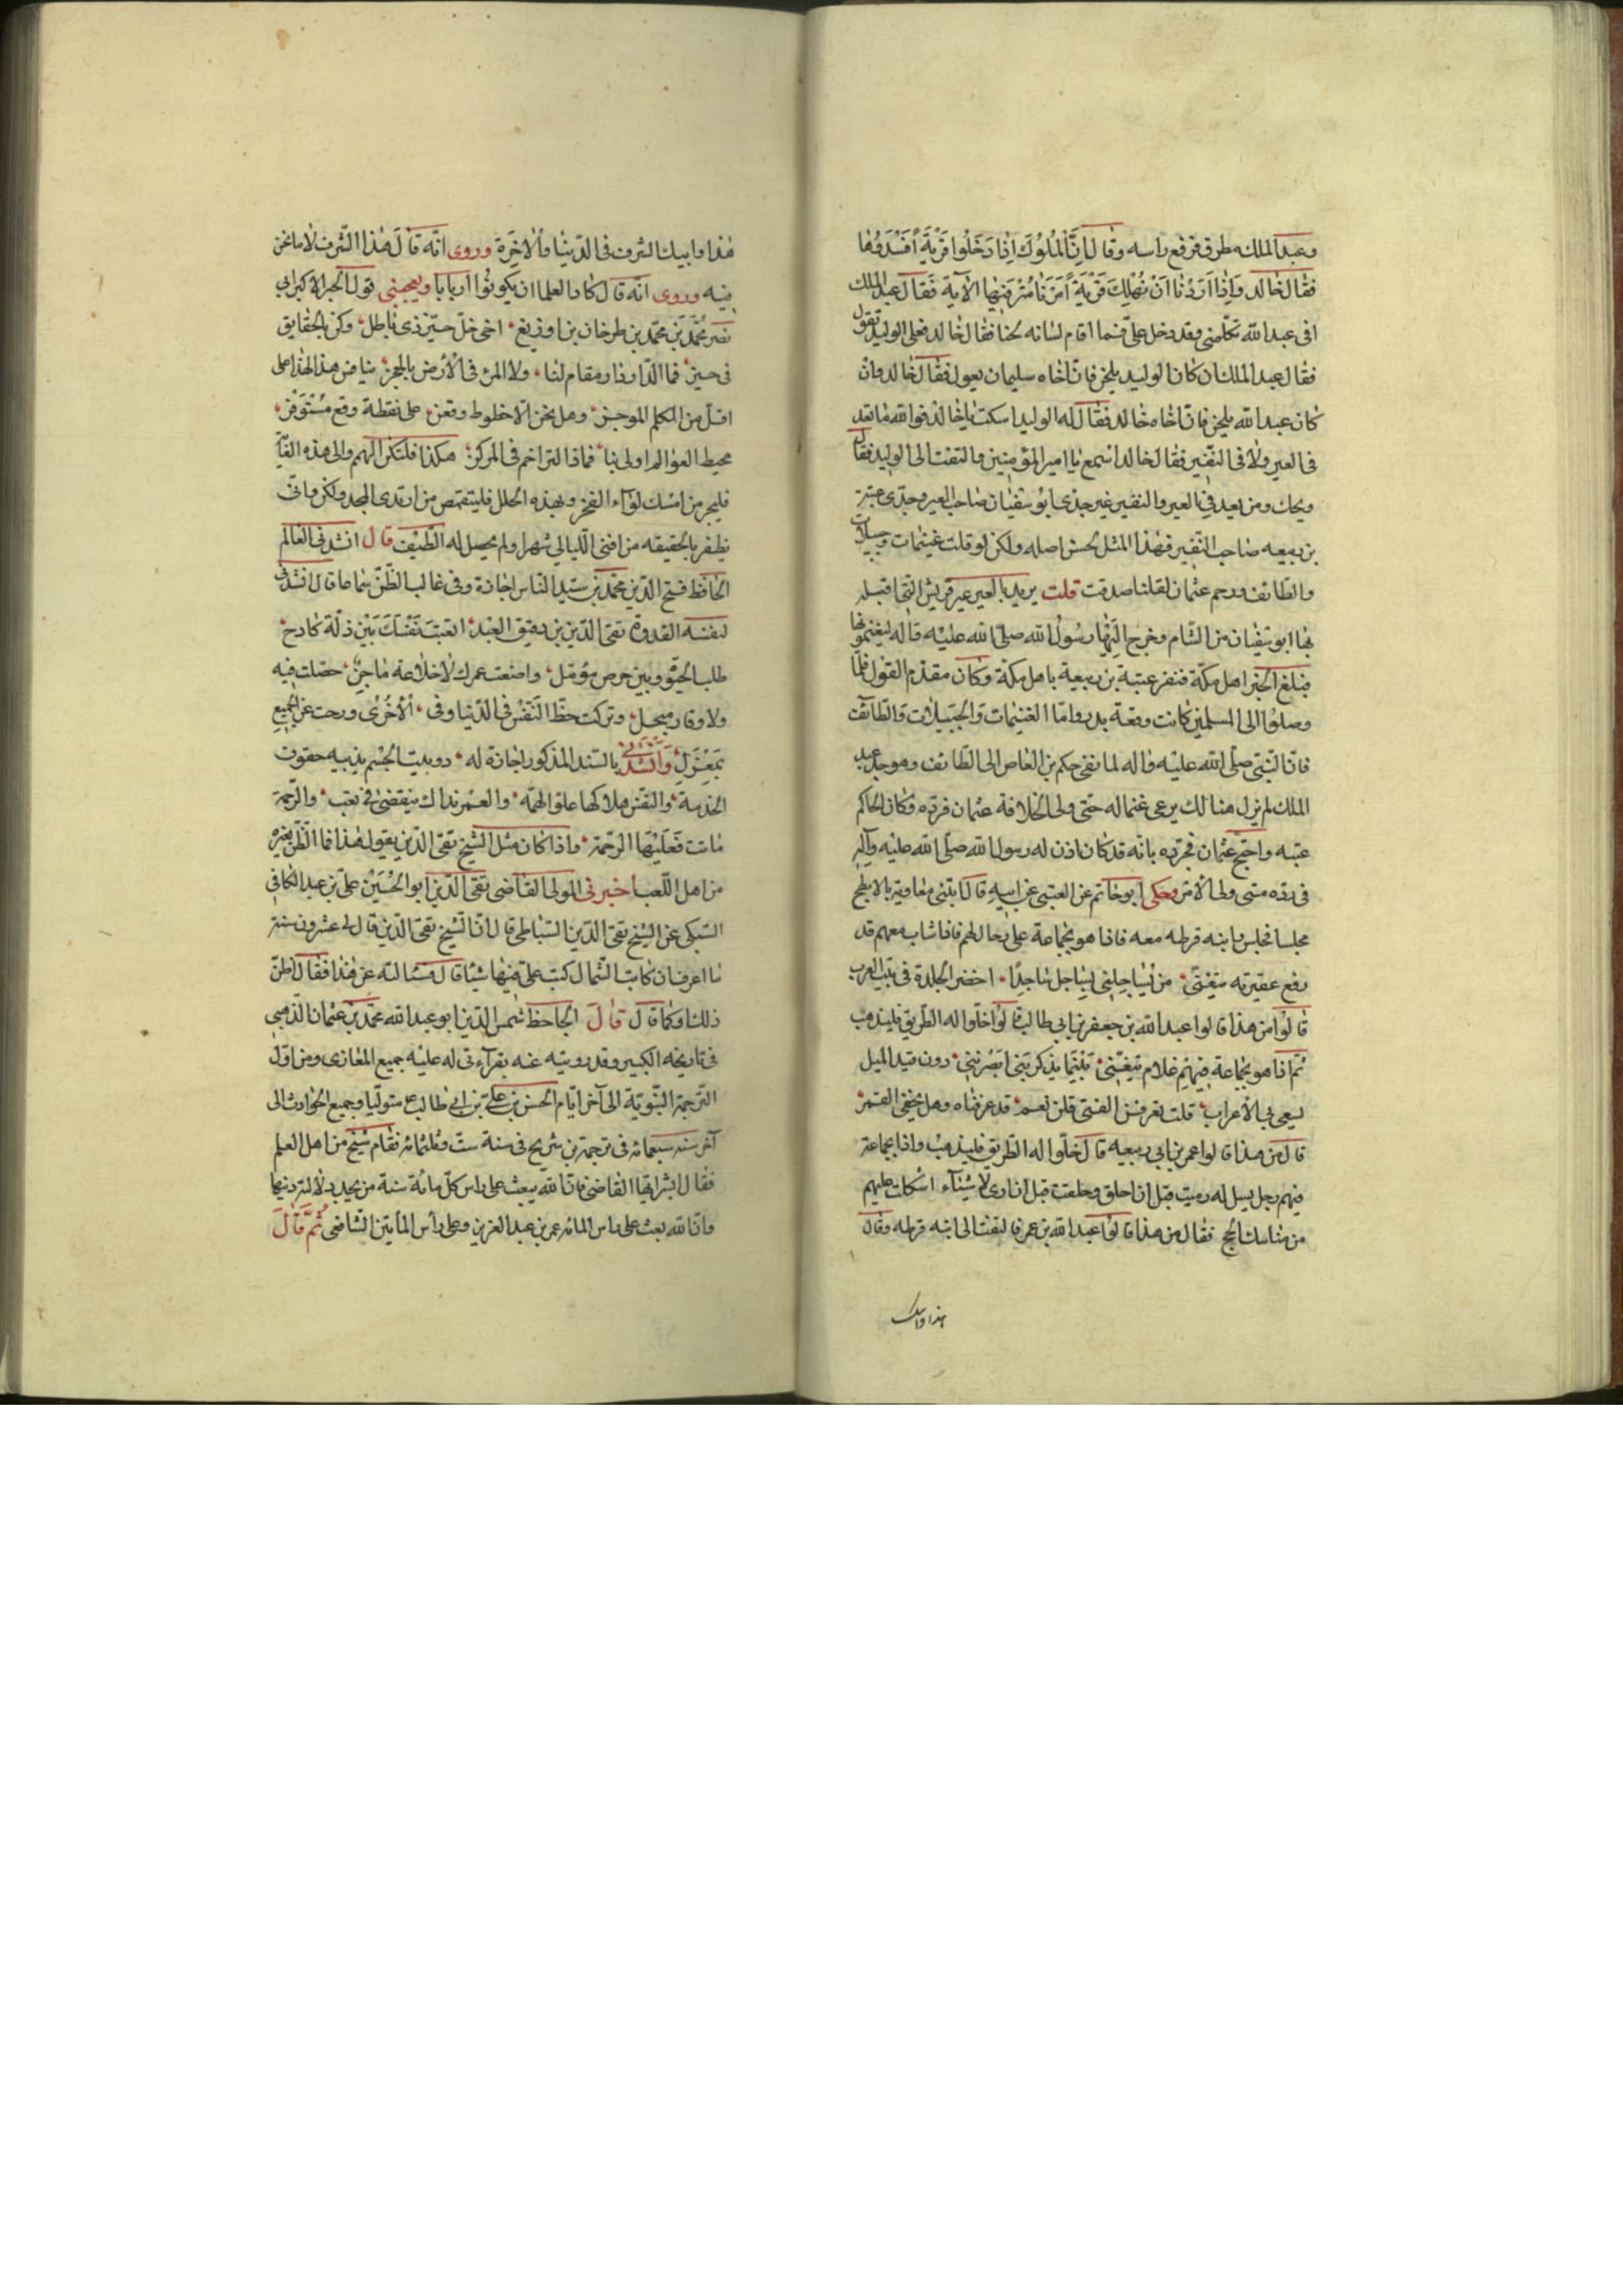 وعبد الملك مطرق فرفع راسه وقال اِنَّ الْمُلُوكَ اِذَا دَخَلُوا قَرْيَةً اَفْسَدُوهَا
فقال خالد وَاِذَا اَرَدْنَا اَنْ نُهْلِكَ قَرْيَةً اَمَرْنَا مُتْرَفِيهَا الآية فقال عبد الملك
افى عبد الله تكلمنى وقد دخل علىّ فما اقام لسانه لحنا فقال خالد فعلى الوليد تقول
فقال عبد الملك ان كان الوليد يلحن فانّ اخاه سليمان يعول فقال خالد وان
كان عبد الله يلحن فانّ اخاه خالد فقال له الوليد اسكت يا خالد فوالله ما تعد
فى العير ولا فى النفير فقال خالد اسمع يا امير المؤمنين والتفت الى الوليد فقال
ويحك ومن يعد فى العير والنفير غير جدى ابو سفيان صاحب العير وجدى عتبة
بن ربيعه صاحب النفير فهذا المثل لحسن اصله ولكن لو قلت غنيمات وحبيلات
والطائف ورحم عثمان لقلنا صدقت قلت يريد بالعير عير قريش التى اقبل
بها ابو سفيان من الشام وخرج اليها رسول الله صلى الله عليه واله ليغنموها
فبلغ الخبر اهل مكة فنفر عتبة بن ربيعة باهل مكة وكان مقدم القول فلما
وصلوا الى المسلمين كانت وقعة بدر واما الغنيمات والحبيلات والطائف
فان النبى صلى الله عليه واله لما نفى حكم بن العاص الى الطائف وهو جد عبد
الملك لم يزل هنالك يرعى غنما له حتى ولى الخلافة عثمان فرده وكان الحاكم
عتبه واحتج عثمان فى رده بانه قد كان اذن له رسول الله صلى الله عليه وآله
فى رده متى ولى الامر وحكى ابو حاتم عن العتبى عن ابيه قال ابتنى معاوية بالابطح
مجلسا فجلس وابنه قرظه معه فاذا هو بجماعة على رحال لهم فاذا شاب معهم قد
رفع عقيرته يتغنى من يساجلنى يساجل ماجدًا اخضر الجلدة فى بيت العرب
قالوا من هذا قالوا عبد الله بن جعفر بن ابى طالب قالوا خلوا له الطريق فليذهب
ثم اذا هو بجماعة فيهم غلام يتغنى بينما يذكرننى ابصرننى دون قيد الميل
يسعى بى الاعراب قلت تعرفن الفتى قلن نعم قد عرفناه وهل يخفى القمر
قال من هذا قالوا عمر بن ابى ربيعه قال خلوا له الطريق فليذهب واذا بجماعة
فيهم رجل يسل له رميت قبل ان احلق وحلقت قبل ان ارمى لاشياء اشكلت عليهم
من مناسك الحج فقال من هذا قالوا عبد الله بن عمر فالتفت الى ابنه قرظه وقال
هذا وابيك
هذا وابيك الشرف فى الدنيا والاخرة وروى انه قال هذا الشرف لا ما نحن
فيه وروى انه قال كاد العلما ان يكونوا اربابا ويعجبنى قول الحبر الاكبر ابى
نصر محمد بن محمد بن طرخان بن اوزيغ اخى خل حيز ذى باطل وكن بالحقايق
فى حيز فما الدار دار مقام لنا ولا المرء فى الارض بالمعجز ينافس هذا لهذا على
اقل من الكلم الموجز وهل نحن الا خطوط وقعن على نقطة وقع مستوفز
محيط العوالم اولى بنا فماذا التزاحم فى المركز هكذا فلتكن الهمم والى هذه الغاية
فليجر من امسك لواء الفخر وبهذه الحلل فليتقمص من ارتدى المجد ولكن ما انى
يظفر بالحقيقه من افنى الليالى شهرا ولم يحصل له الطيف قال انشدنى العالم
الحافظ فتح الدين محمد بن سيد الناس اجازة وفى غالب الظن سماعا قال انشدنى
لنفسه القدوة تقى الدين بن دقيق العيد اتعبت نفسك بين ذلة كادح
طلب الحيوة وبين حرص مؤمل واضعت عمرك لا خلاعة ماجن حصلت فيه
ولا وقار مبجل وتركت حظ النفس فى الدنيا وفى الاخرى ورحت عن الجميع
بمعزل وانشدنى بالسند المذكور اجازة له دوبيت الجسم يذيبه حقوق
الخدمة والنفس هلاكها علو الهمه والعمر بذاك ينقضى فى تعب والراحة
ماتت فعليها الرحمة واذا كان مثل الشيخ تقى الدين يقول هذا فما الظن بغيره
من اهل اللعب اخبرنى المولى القاضى تقى الدين ابو الحسين على بن عبد الكافى
السبكى عن الشيخ تقى الدين السباطى قال ان الشيخ تقى الدين قال لى عشرون سنة
ما اعرف ان كاتب الشمال كتب على فيها شيئا قال فسئالته عن هذا فقال اظن
ذلك او كما قال قال الحافظ شمس الدين ابو عبد الله محمد بن عثمان الذهبى
فى تاريخه الكبير وقد رويته عنه بقرآءتى له عليه جميع المغازى ومن اول
الترجمة النبوية الى آخر ايام الحسن بن على بن ابى طالب ع متوليا وجميع الحوادث الى
آخر سنه سبعمائه فى ترجمة بن شريح فى سنة ست وثلثمائه فقام شيخ من اهل العلم
فقال ابشر ايها القاضى فان الله يبعث على راس كل مائة سنة من يجدد للامة دينها
وان الله بعث على راس المائه عمر بن عبد العزيز وعلى رأس المأيتين الشافعى ثُمَّ قَالَ